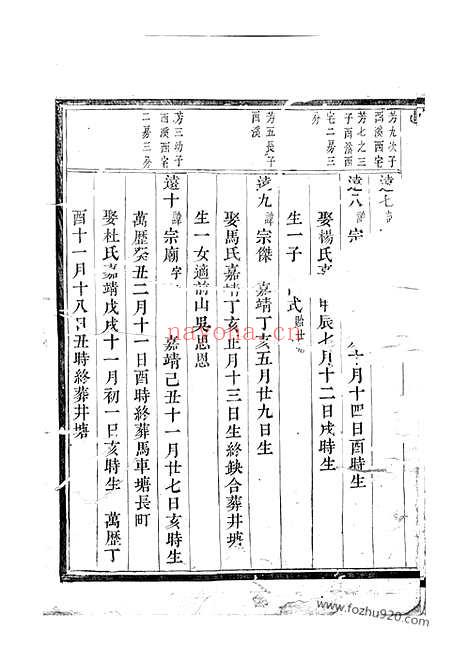 芳九次子
西溪西宅
遠七
芳七之三
子西溪西
宅二房三
分
遠八諱宗 月十四日酉時生
娶楊氏嘉 甲辰七月十二日戌時生
生一子 式
芳五長子
西溪
遠九諱宗傑 嘉靖丁亥五月廿九日生
娶馬氏嘉靖丁亥正月十三日生終缺合葬井塘
生一女適前山吳思恩
芳三幼子
西溪西宅
二房三分
遠十諱宗廟字 嘉靖己丑十一月廿七日亥時生
萬歷癸丑二月十一日酉時終葬馬車塘長町
娶杜氏嘉靖戊戌十一月初一日亥時生 萬歷丁
酉十一月十八日丑時終葬井塘
nayona.cn
www.fozhu920.com